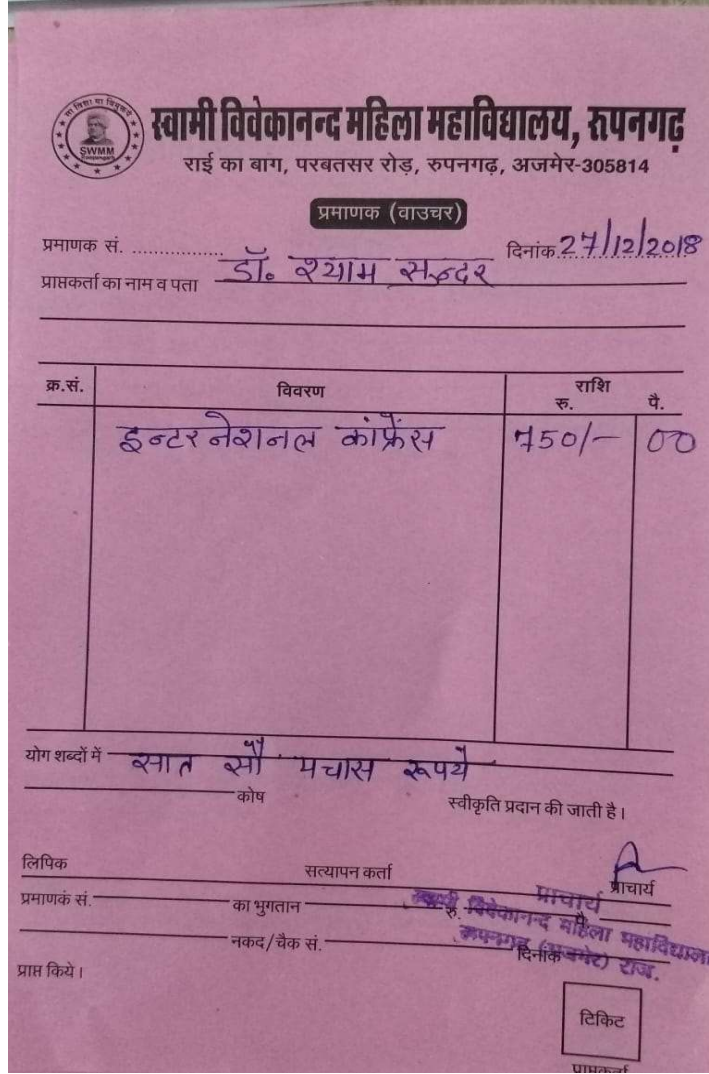 सा विद्या या विमुक्तये
SWMM
स्वामी विवेकानन्द महिला महाविद्यालय, रुपनगढ़
राई का बाग, परबतसर रोड़, रुपनगढ़, अजमेर-305814
प्रमाणक (वाउचर)
प्रमाणक सं. ................. दिनांक 27/12/2018
प्राप्तकर्ता का नाम व पता डॉ. श्याम सुन्दर
क्र.सं. विवरण राशि
रु. पै.
इन्टरनेशनल कांफ्रेंस 750/- 00
योग शब्दों में सात सौ पचास रूपये
कोष स्वीकृति प्रदान की जाती है।
लिपिक सत्यापन कर्ता प्राचार्य
प्राचार्य
प्रमाणकं सं. का भुगतान रु. पै.
स्वामी विवेकानन्द महिला महाविद्याल
रूपनगढ़ (अजमेर) राज.
नकद/चैक सं. दिनांक
प्राप्त किये।
टिकिट
प्राप्तकर्ता